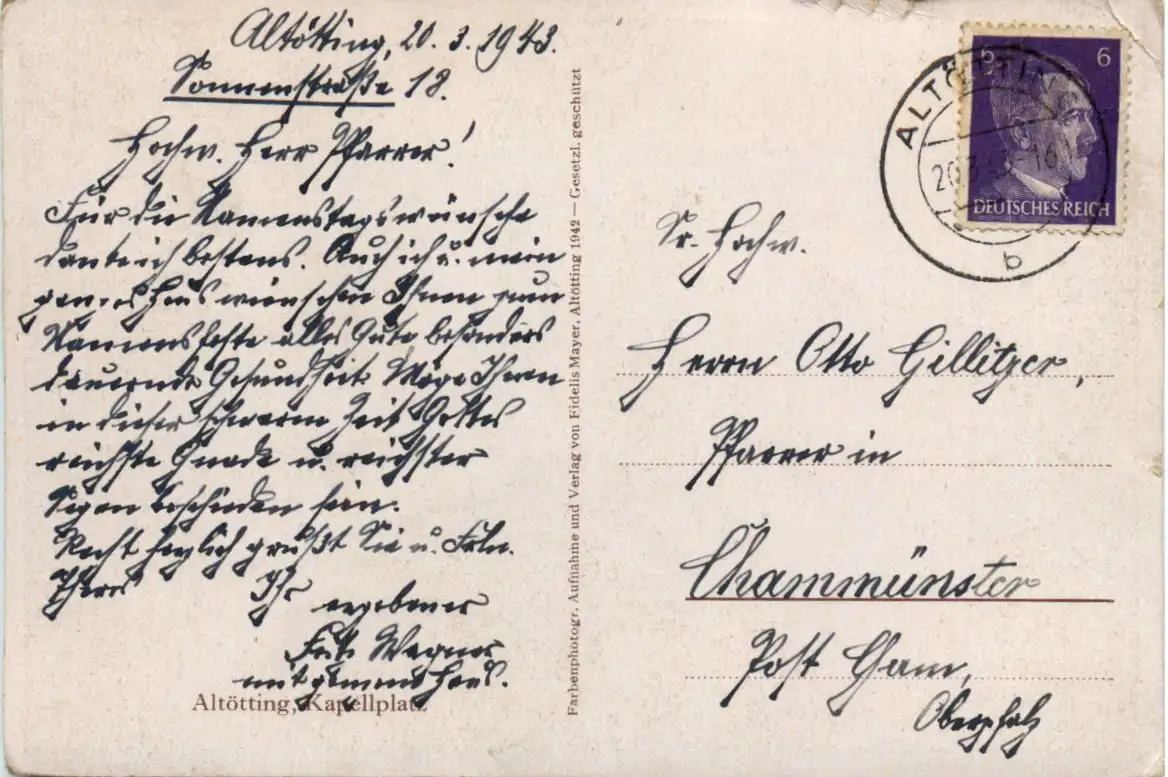 Altötting, 20. 3. 1943.
Sonnenstraße 18.
Hochw. Herr Pfarrer!
Für die Namenstagswünsche
danke ich bestens. Auch ich u. mein
ganzes Haus wünschen Ihnen zum
Namensfeste alles Gute besonders
dauernde Gesundheit. Möge Ihnen
in dieser schweren Zeit Gottes
reichste Gnade u. reichster
Segen beschieden sein.
Recht herzlich grüßt Sie u. Frln.
Ihr
ergebener
Wagner
mit ganzem Haus.
Altötting, Kapellplatz
Farbenphotogr. Aufnahme und Verlag von Fidelis Mayer, Altötting 1942 — Gesetzl. geschützt
6 6
DEUTSCHES REICH
ALTÖTTING
b
Sr. Hochw.
Herrn Otto Gillitzer,
Pfarrer in
Chammünster
Post Cham,
Oberpfalz